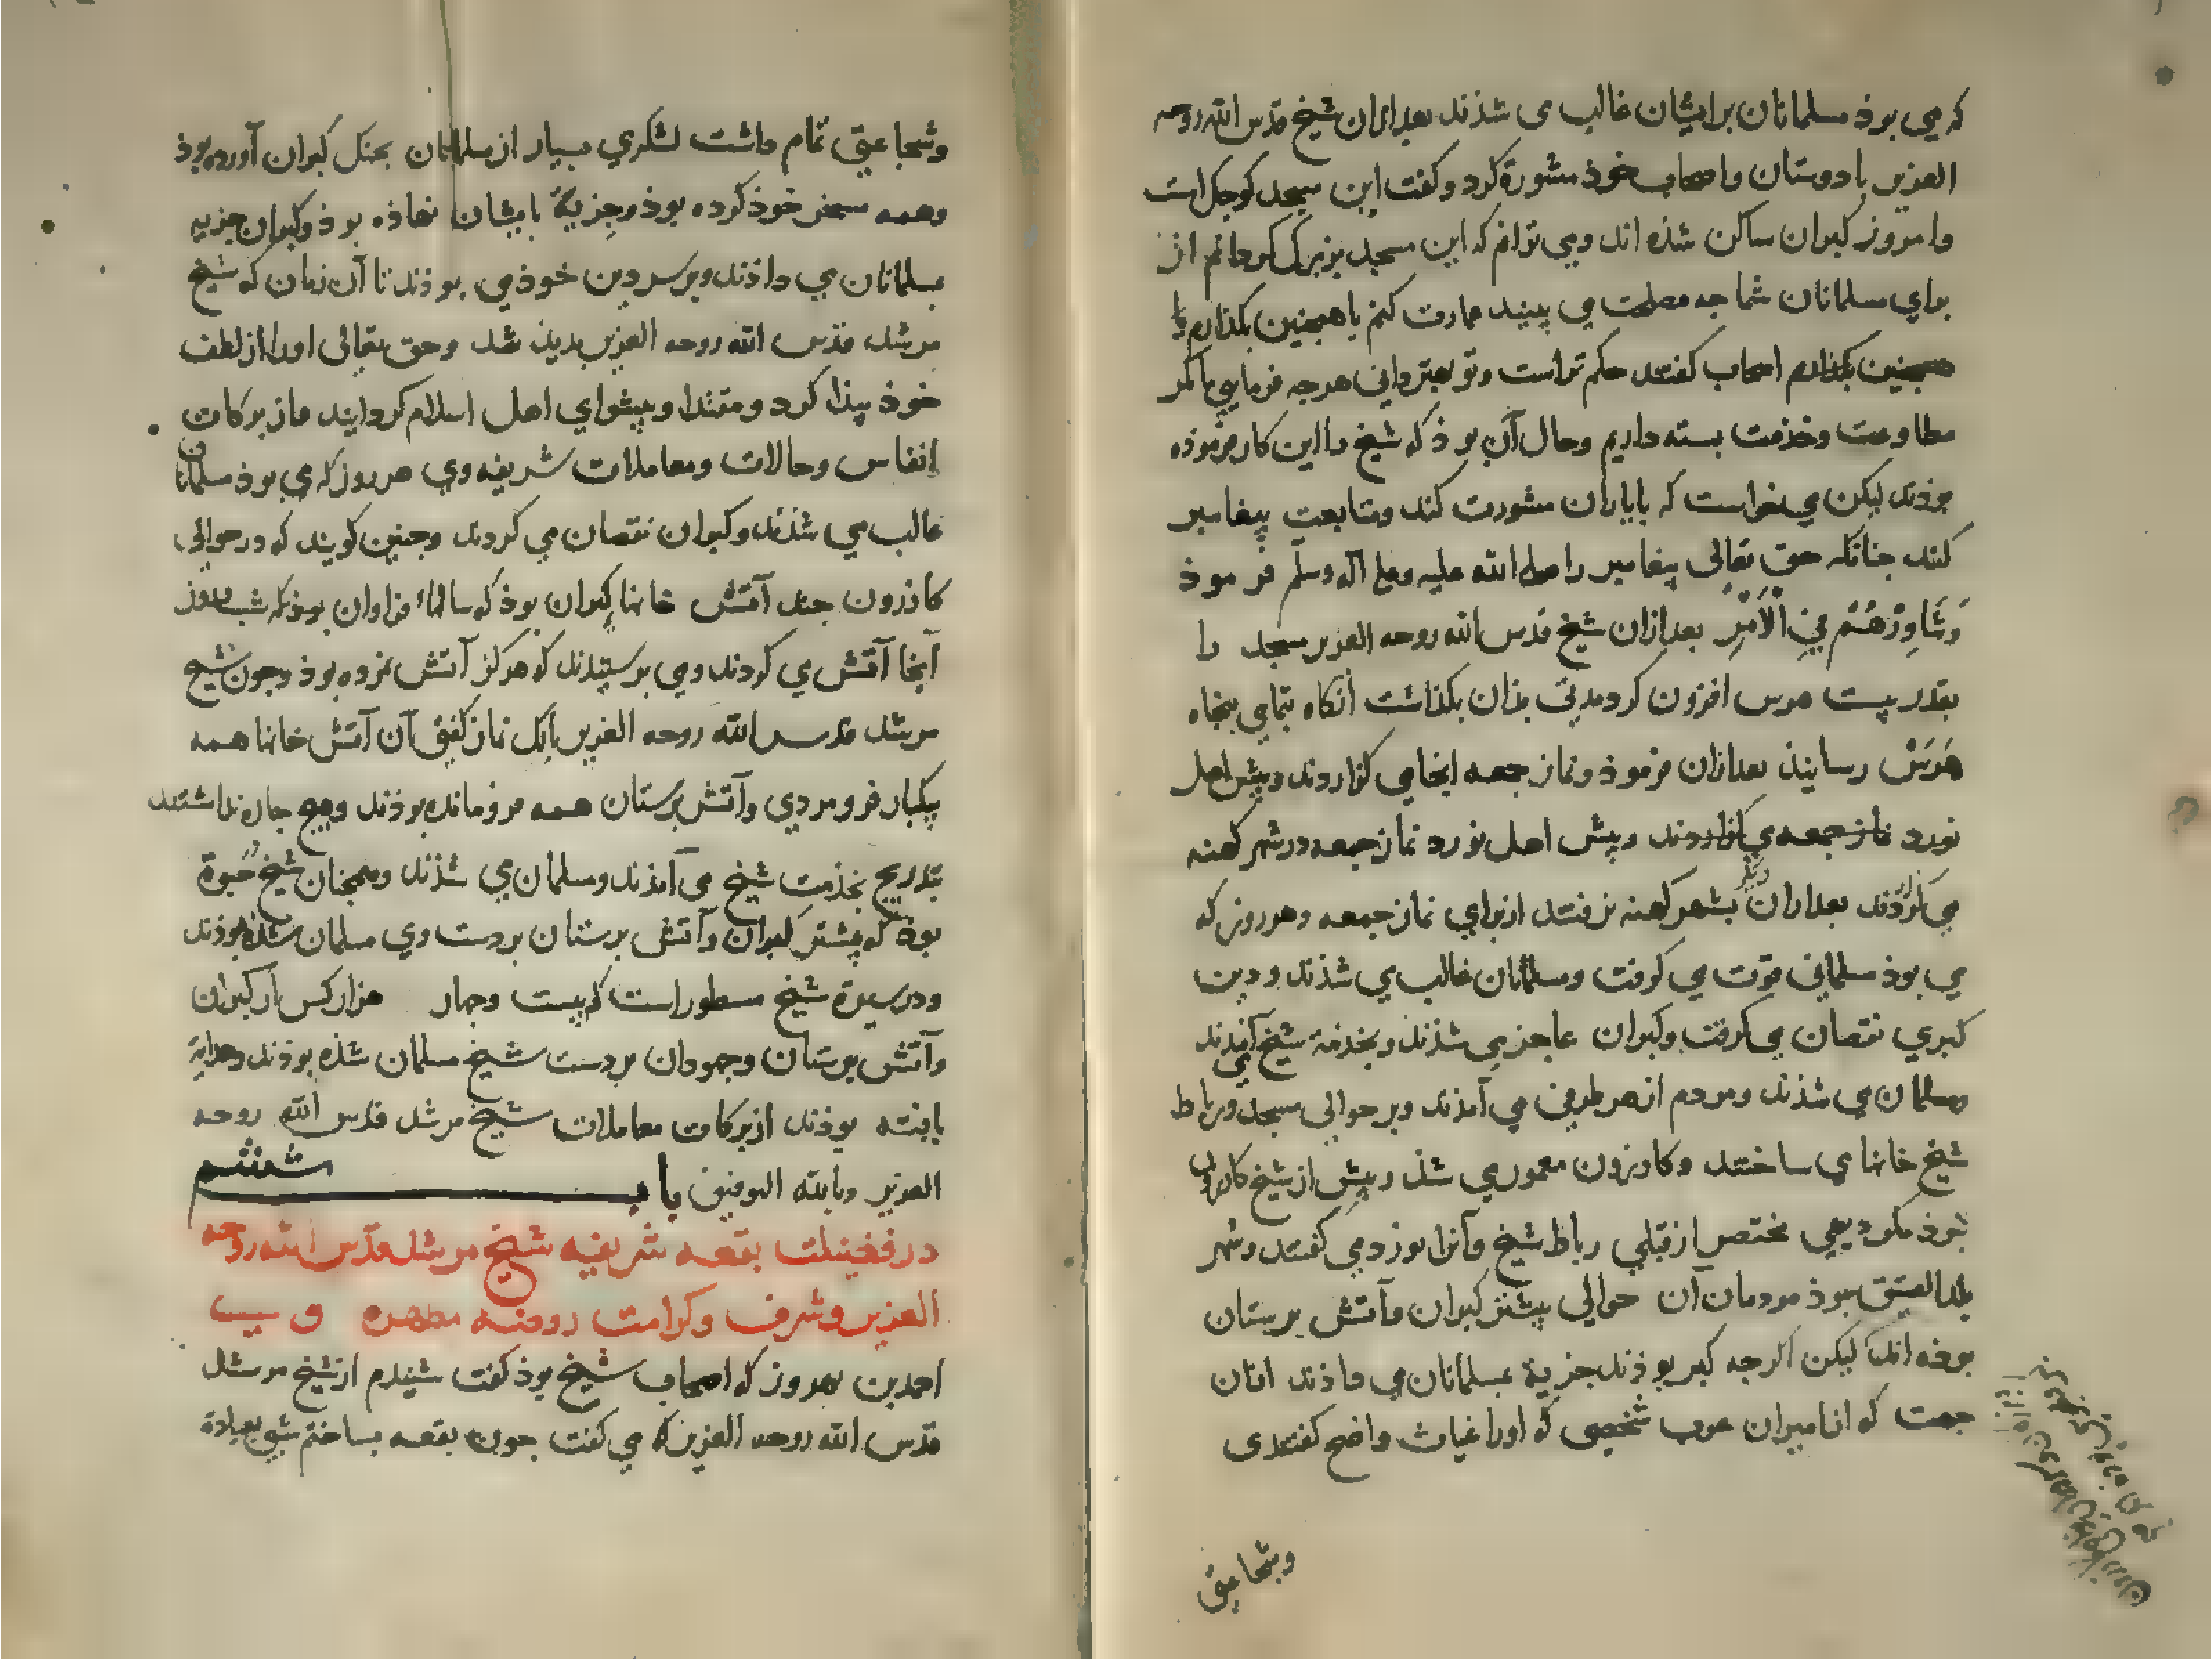 که می بوذ مسلمانان برایشان غالب می شذند بعد ازان شیخ قدس الله روحه
العزیز با دوستان و اصحاب خوذ مشورة کرد و کفت این مسجد کوجک است
و امروز کبران ساکن شذه اند و می توانم که این مسجد بزرک کردانم از
برای مسلمانان شما جه مصلحت می بینید عمارت کنم یا همجنین بکذارم یا
همجنین بکذارم اصحاب کفتند حکم تراست و تو بهتر دانی هرجه فرمایی ما کمر
مطاوعت و خذمت بسته داریم و حال آن بوذ که شیخ را این کار فرموذه
بوذند لیکن می خواست که با یاران مشورت کند و متابعت پیغامبر
کند جنانکه حق تعالی پیغامبر را صلی الله علیه و علی آله و سلم فرموذ
وَشَاوِرْهُمْ فِي الْأَمْرِ بعد ازان شیخ قدس الله روحه العزیز مسجد را
بقدر بیست هرس افزون کرد مدتی بذان بکذاشت آنکاه بتمامی بنجاه
هَرَسْ رسانید بعد ازان فرموذ و نماز جمعه اینجا می کزاردند و پیش اهل
نورد نماز جمعه می کزاردند و پیش اهل نورد نماز جمعه در شهر کهنه
می کزاردند بعد ازان دیکر بشهر کهنه نرفتند از برای نماز جمعه و هر روز که
می بوذ مسلمانی قوت می کرفت و مسلمانان غالب می شذند و دین
کبری نقصان می کرفت و کبران عاجز می شذند و بخذمة شیخ می آمذند
و مسلمان می شذند و مردم از هر طرفی می آمذند و بر حوالی مسجد و رباط
شیخ خانها می ساختند و کازرون معمور می شذ و پیش از شیخ کازرون
نبوذ مکر دیهی مختصر از قبلی رباط شیخ و آنرا نورد می کفتند و شهر
بلد العتیق بوذ مردمان آن حوالی بیشتر کبران و آتش پرستان
بوذه اند لیکن اکرجه کبر بوذند جزیة بمسلمانان می داذند ازان
جهت که از امیران عرب شخصی که اورا غیاث واضح کفتندی
وشجاعتی
وشجاعتی تمام داشت لشکری بسیار از مسلمانان بجنک کبران آورده بوذ
و همه مسخر خوذ کرده بوذ و جزیة بایشان نهاذه بوذ و کبران جزیه
بمسلمانان می داذند و بر سر دین خوذ می بوذند تا آن زمان که شیخ
مرشد قدس الله روحه العزیز بدید شد و حق تعالی اورا از لطف
خوذ پیذا کرد و مقتدا و پیشوای اهل اسلام کردانید و از برکات
انفاس و حالات و معاملات شریفه وی هر روز که می بوذ مسلمانان
غالب می شذند و کبران نقصان می کردند و جنین کویند که در حوالی
کازرون جند آتش خانها کبران بوذ که سالهاء فراوان بوذ که شب و روز
آنجا آتش می کردند و می پرستیدند که هرکز آتش نمرده بوذ و جون شیخ
مرشد قدس الله روحه العزیز بانک نماز کفتی آن آتش خانها همه
بیکبار فرو مردی و آتش پرستان همه فرومانده بوذند و هیج جاره نداشتند
بتدریج بخذمت شیخ می آمذند و مسلمان می شذند و همجنان شیخ در حیوة
بوذ که بیشتر کبران و آتش پرستان بر دست وی مسلمان شذه بوذند
و در سیرة شیخ مسطور است که بیست و جهار هزار کس از کبران
و آتش پرستان و جهودان بر دست شیخ مسلمان شذه بوذند و هدایة
یافته بوذند از برکات معاملات شیخ مرشد قدس الله روحه
العزیز و بالله التوفیق باب ششم
در فضیلت بقعه شریفه شیخ مرشد قدس الله روحه
العزیز و شرف و کرامت روضه مطهره وی
احمد بن بهروز که اصحاب شیخ بوذ کفت شنیدم از شیخ مرشد
قدس الله روحه العزیز که می کفت جون بقعه بساختم شبی بعبادة